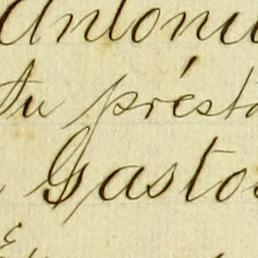 Antoni
Su présta
Gastos